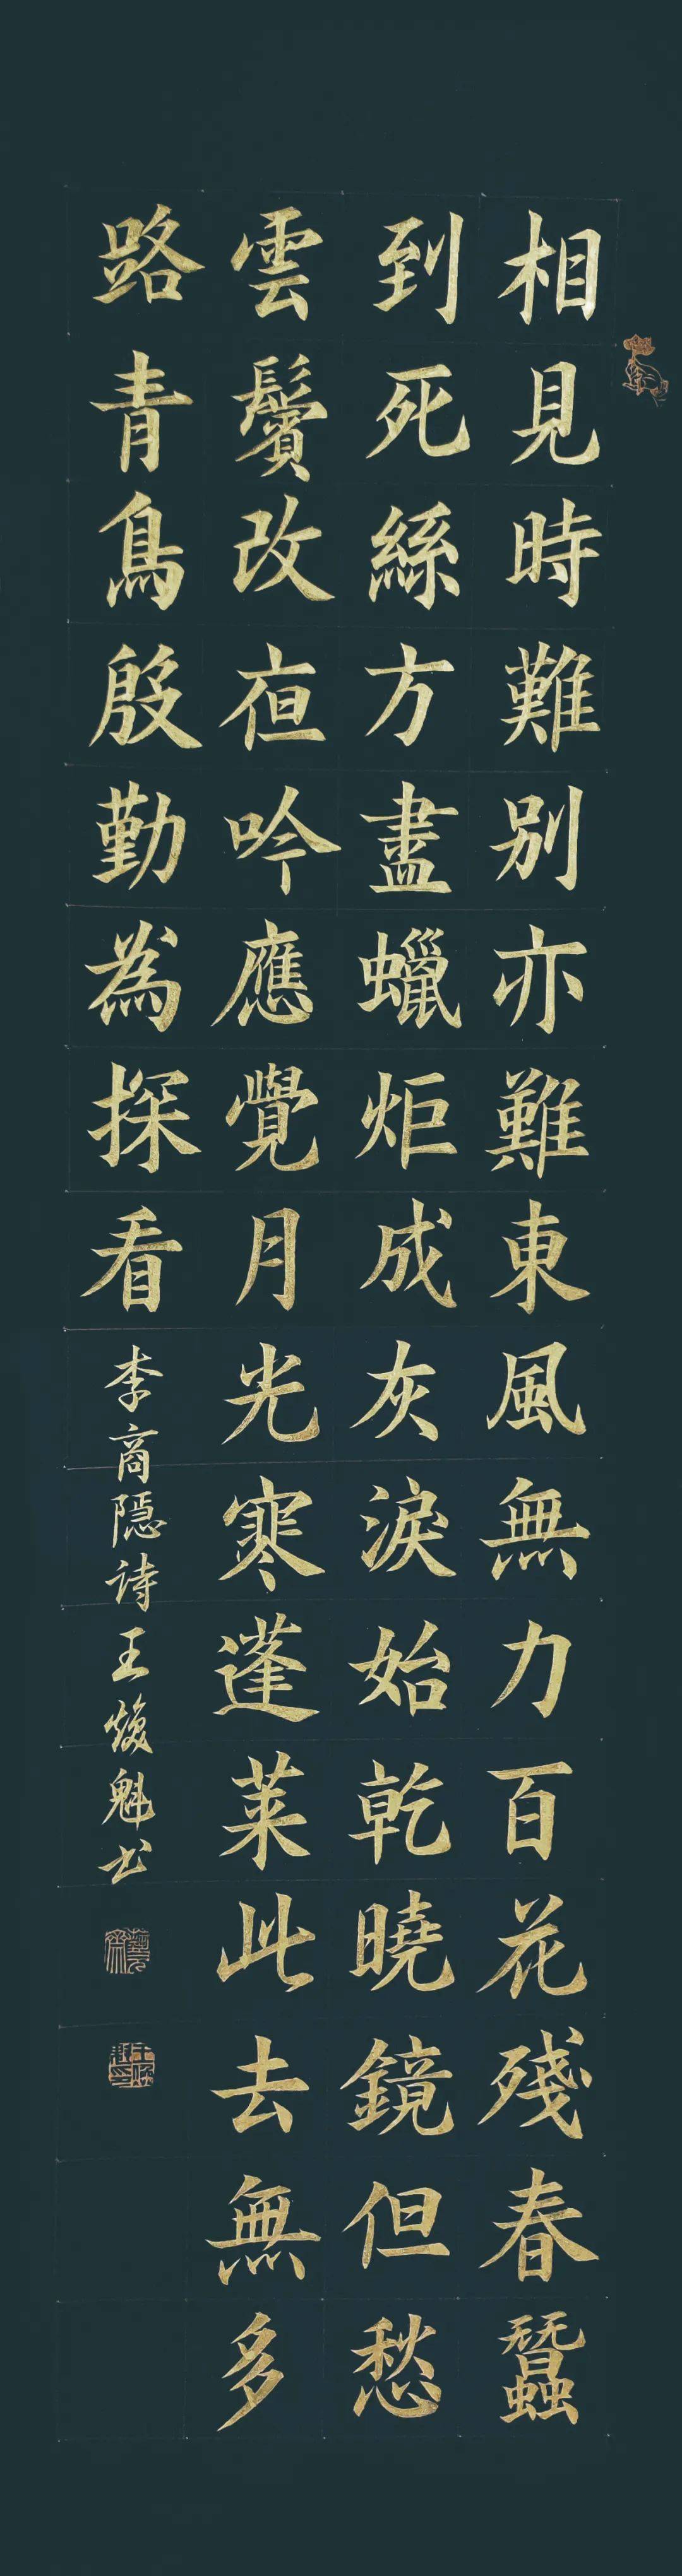 相見時難別亦難東風無力百花殘春蠶
到死絲方盡蠟炬成灰淚始乾曉鏡但愁
雲鬢改亱吟應覺月光寒蓬莱此去無多
路青鳥殷勤為探看
李商隱诗王焕魁书